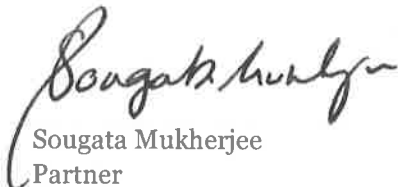 Sougata Mukherjee
Sougata Mukherjee
Partner